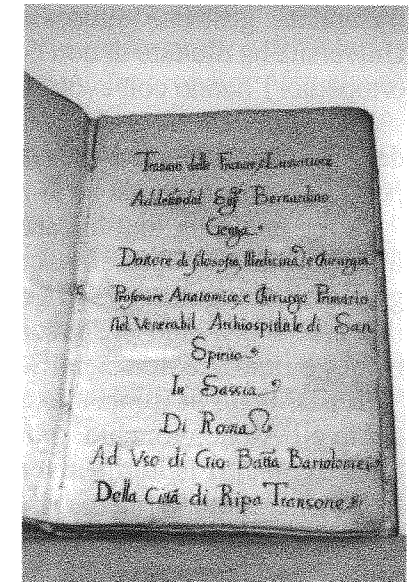 Trattato delle Fratture, e Lussature
Addel Sigr Bernardino
Genga
Dottore di filosofia, Medicina, e Chirurgia
Professore Anatomico, e Chirurgo Primario
Nel Venerabil Archiospidale di San
Spirito
In Sassia
Di Roma
Ad Vso di Gio Batta Bartolomei
Della Cittá di Ripa Transone